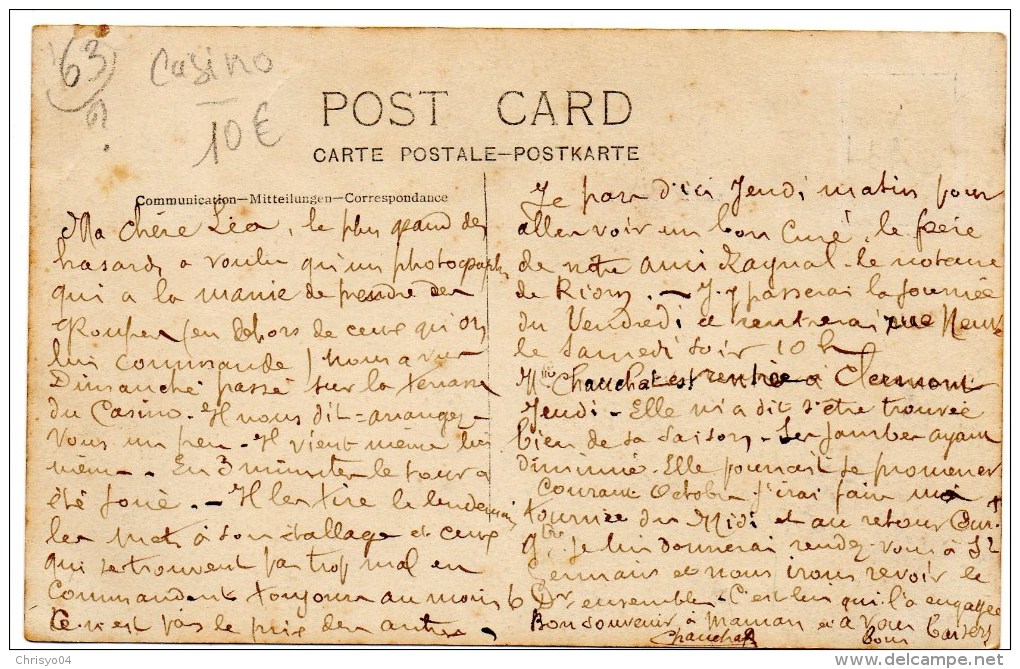 63
?
Casino
10€
POST CARD
CARTE POSTALE—POSTKARTE
Communication—Mitteilungen—Correspondance
Ma chére Léa, le plus grand des
hasards a voulu qu'un photographe
qui a la manie de prendre des
Groupes (en dehors de ceux qu'on
lui commande) nous a vu
Dimanche passé sur la terrasse
du Casino. Il nous dit = arrangez
vous un peu. Il vient même lui
même. En 3 minutes le tour a
été joué. — Il les tire le lendemain
les met à son étallage et ceux
qui se trouvent pas trop mal en
Commandent toujours au moins 6
Ce n'est pas le prix des autres,
Je pars d'ici Jeudi matin pour
aller voir un bon Curé, le frère
de notre ami Raynal le notaire
de Riom. — J'y passerai la journée
du Vendredi et rentrerai rue Neuve
le Samedi soir 10 h
Mlle Chauchat est rentrée à Clermont
Jeudi. Elle m'a dit s'être trouvée
bien de sa saison. Ses jambes ayant
diminué. Elle pouvait se promener
Courant Octobre j'irai faire ma
tournée du Midi et au retour
je lui donnerai rendez-vous à St
Germain et nous irons revoir le
Dr ensemble. C'est lui qui l'a engagée
Bon souvenir à Maman et à vous bons baisers
Chauchat
Chrisyo04
www.delcampe.net